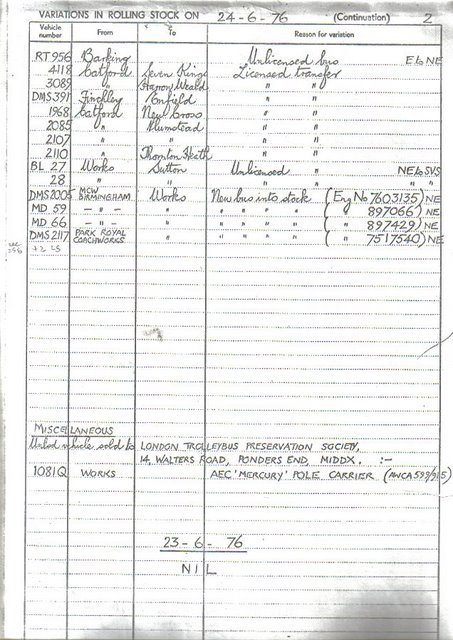 VARIATIONS IN ROLLING STOCK ON 24-6-76 (Continuation) 2
Vehicle number From To Reason for variation
RT 956 Barking Unlicensed bus E to NE
4118 Catford Seven Kings Licensed transfer
3089 " Harrow Weald " "
DMS 391 Finchley Enfield " "
1968 Catford New Cross " "
2085 " Plumstead " "
2107 " " " "
2110 " Thornton Heath " "
BL 27 Works Sutton Unlicensed " NE to SVS
28 " " " " " "
DMS 2005 MCW BIRMINGHAM Works New bus into stock (Eng No 7603135) NE
MD 59 - " - " " " " " ( " 897066) NE
MD 66 - " - " " " " " ( " 897429) NE
DMS 2117 PARK ROYAL COACHWORKS " " " " " ( " 7517540) NE
MISCELLANEOUS
Unlsd vehicle sold to LONDON TROLLEYBUS PRESERVATION SOCIETY,
14, WALTERS ROAD, PONDERS END, MIDDX. :-
1081Q WORKS AEC 'MERCURY' POLE CARRIER
23-6-76
NIL